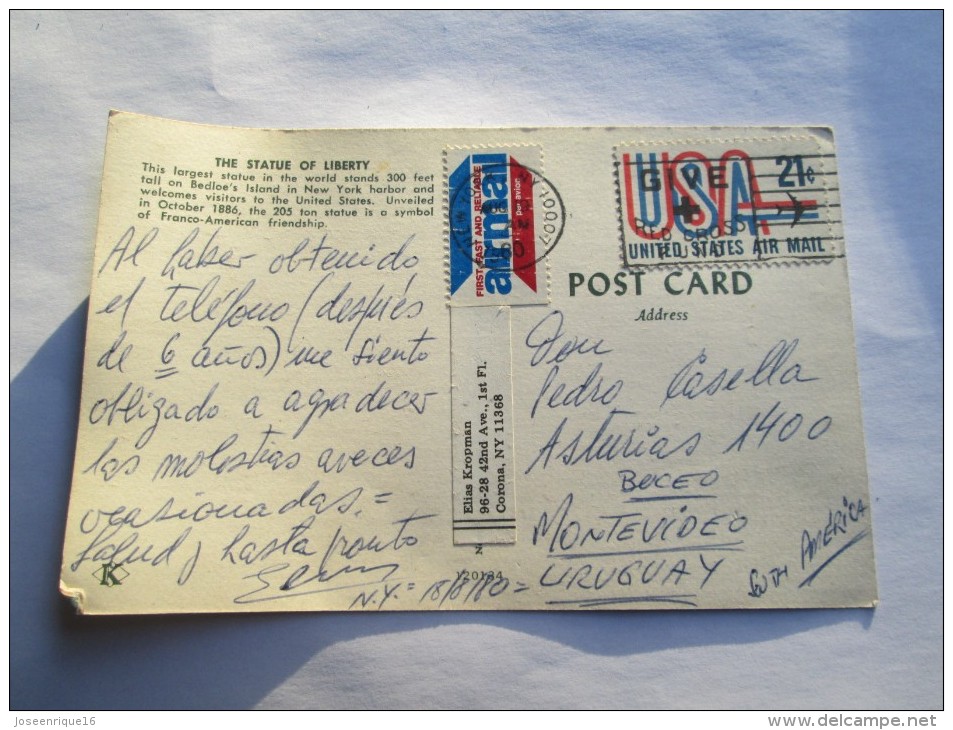 THE STATUE OF LIBERTY
This largest statue in the world stands 300 feet
tall on Bedloe's Island in New York harbor and
welcomes visitors to the United States. Unveiled
in October 1886, the 205 ton statue is a symbol
of Franco-American friendship.
Al haber obtenido
el teléfono (después
de 6 años) me siento
obligado a agradecer
las molestias aveces
ocasionadas =
Salud y hasta pronto
N.Y. = 18/8/80 =
K
FIRST, FAST AND RELIABLE
airmail
par avion
Elias Kropman
96-28 42nd Ave., 1st Fl.
Corona, NY 11368
120134
USA 21¢
UNITED STATES AIR MAIL
GIVE
RED CROSS
POST CARD
Address
Don
Pedro Casella
Asturias 1400
BUCEO
MONTEVIDEO
URUGUAY
SOUTH AMÉRICA
Joseenrique16
www.delcampe.net